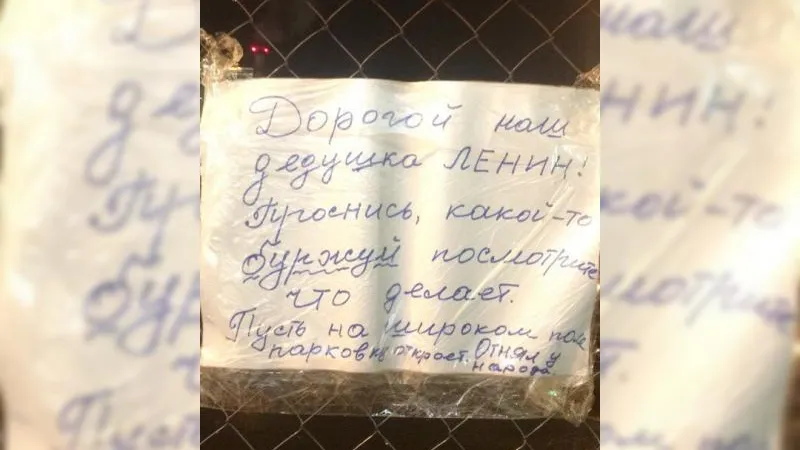 Дорогой наш
дедушка ЛЕНИН!
Проснись, какой-то
буржуй посмотрите
что делает.
Пусть на широком поле
парковки откроет. Отнял у
народа